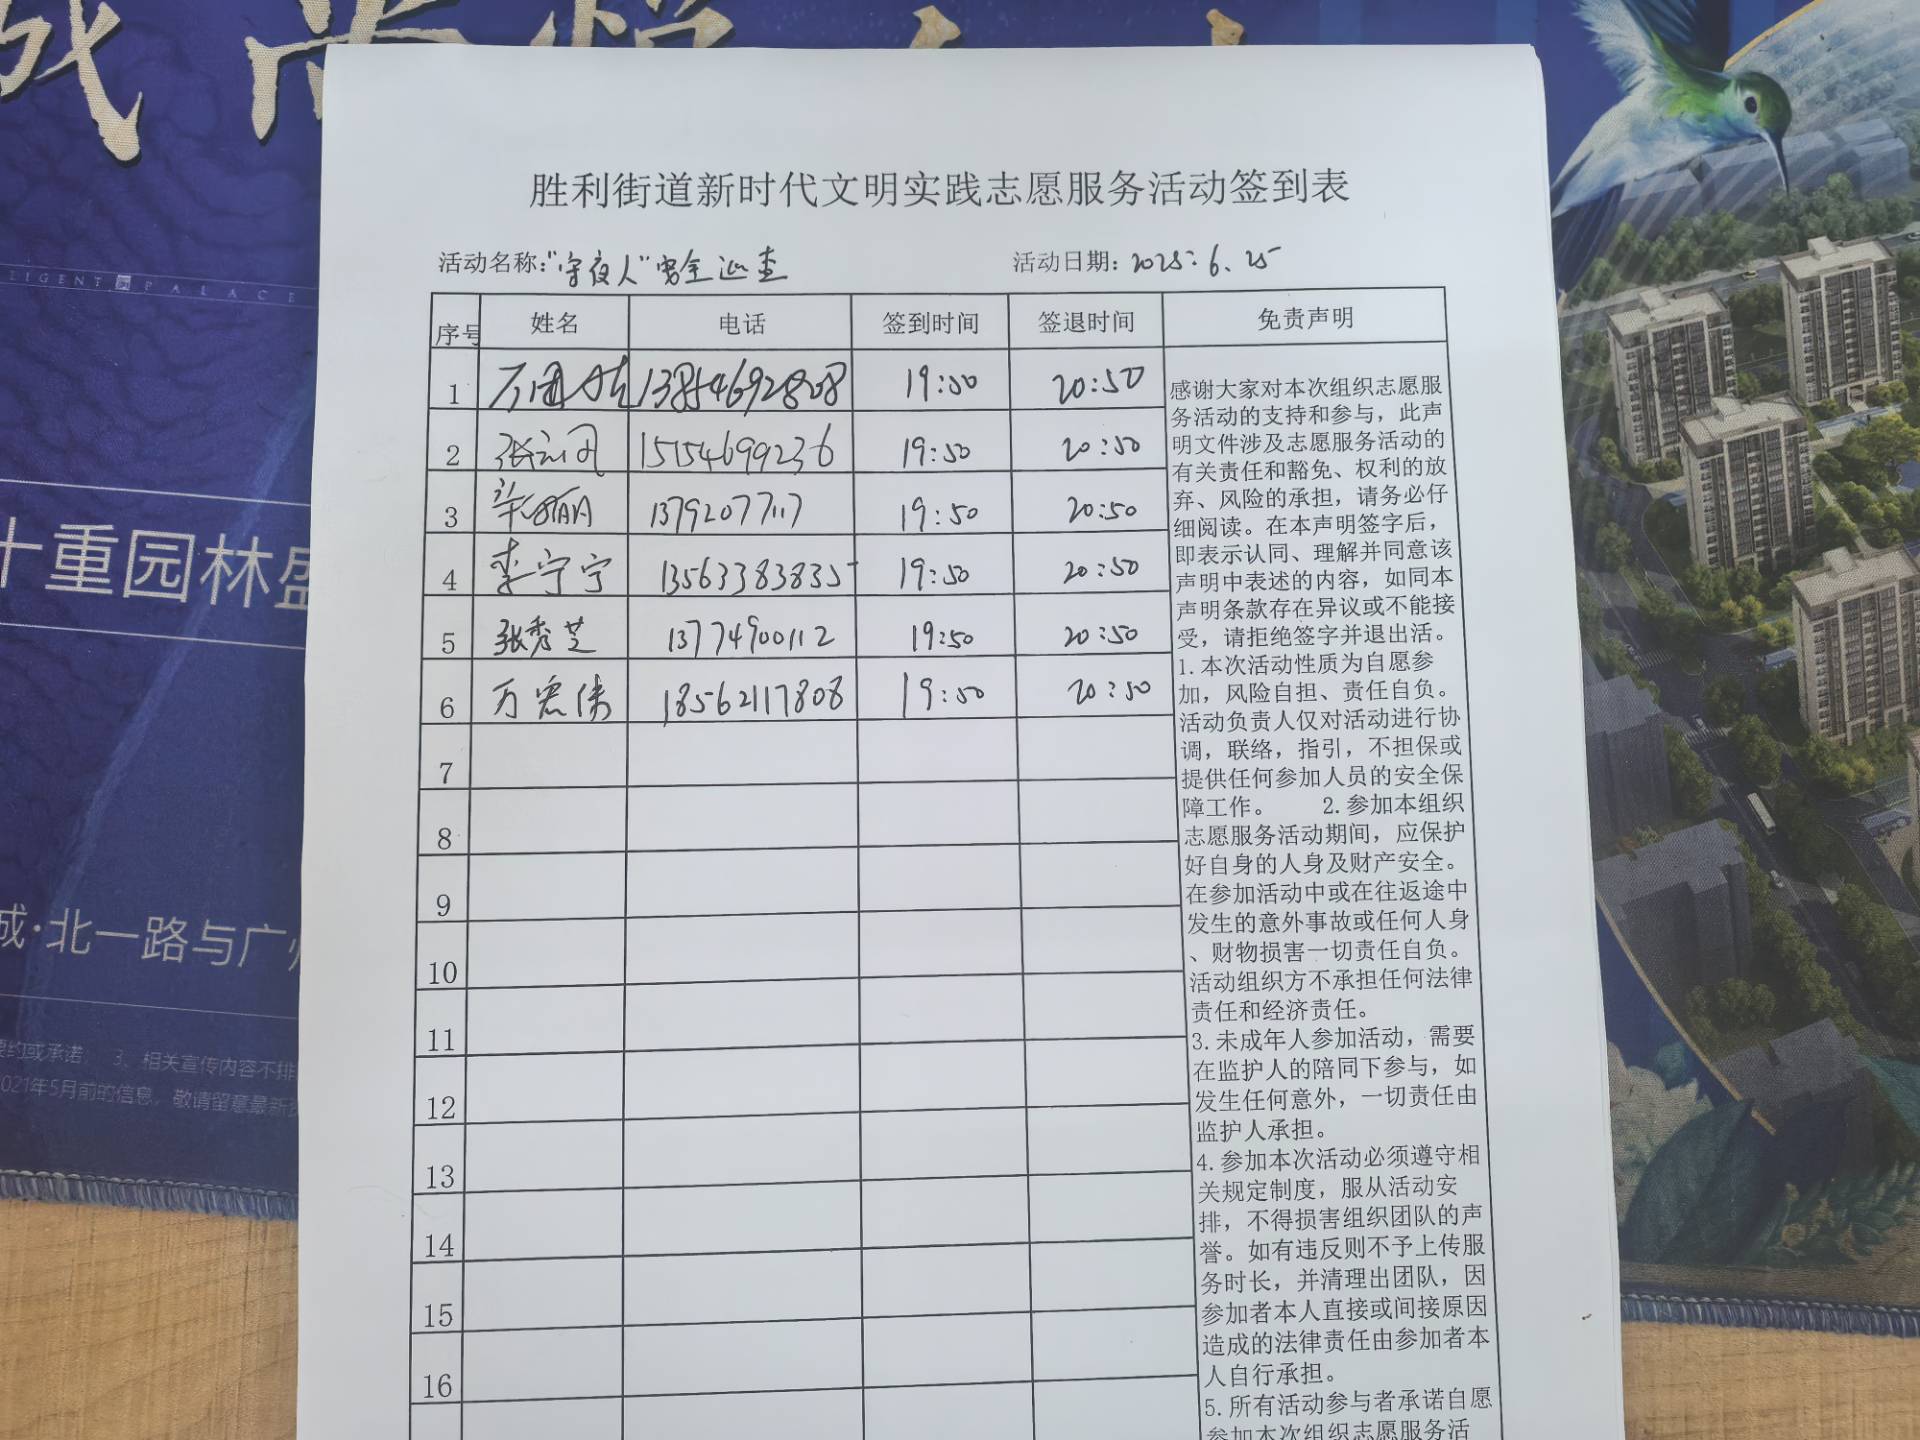 LIGENT PALACE
十重园林盛
城·北一路与广州
要约或承诺。 3、相关宣传内容不排
2021年5月前的信息，敬请留意最新资
胜利街道新时代文明实践志愿服务活动签到表
活动名称："守夜人"安全巡查 活动日期：2025.6.25
序号 姓名 电话 签到时间 签退时间 免责声明
1 13854692808 19:50 20:50
2 15154699236 19:50 20:50
3 13792077117 19:50 20:50
4 李宁宁 13563383835 19:50 20:50
5 张秀芝 13774900112 19:50 20:50
6 万宏伟 18562117808 19:50 20:50
7
8
9
10
11
12
13
14
15
16
感谢大家对本次组织志愿服
务活动的支持和参与，此声
明文件涉及志愿服务活动的
有关责任和豁免、权利的放
弃、风险的承担，请务必仔
细阅读。在本声明签字后，
即表示认同、理解并同意该
声明中表述的内容，如同本
声明条款存在异议或不能接
受，请拒绝签字并退出活。
1.本次活动性质为自愿参
加，风险自担、责任自负。
活动负责人仅对活动进行协
调，联络，指引，不担保或
提供任何参加人员的安全保
障工作。 2.参加本组织
志愿服务活动期间，应保护
好自身的人身及财产安全。
在参加活动中或在往返途中
发生的意外事故或任何人身
、财物损害一切责任自负。
活动组织方不承担任何法律
责任和经济责任。
3.未成年人参加活动，需要
在监护人的陪同下参与，如
发生任何意外，一切责任由
监护人承担。
4.参加本次活动必须遵守相
关规定制度，服从活动安
排，不得损害组织团队的声
誉。如有违反则不予上传服
务时长，并清理出团队，因
参加者本人直接或间接原因
造成的法律责任由参加者本
人自行承担。
5.所有活动参与者承诺自愿
参加本次组织志愿服务活